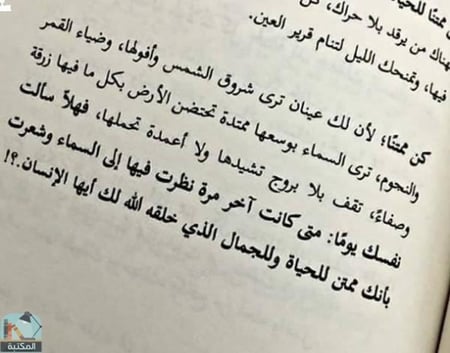 ممتنًا للحياة
هناك من يرقد بلا حراك،
فيها، وتمنحك الليل لتنام قرير العين.
كن ممتنًا؛ لأن لك عينان ترى شروق الشمس وأفولها، وضياء القمر
والنجوم، ترى السماء بوسعها ممتدة تحتضن الأرض بكل ما فيها زرقة
وصفاءً، تقف بلا بروج تشيدها ولا أعمدة تحملها، فهلاّ سألت
نفسك يومًا: متى كانت آخر مرة نظرت فيها إلى السماء وشعرت
بأنك ممتن للحياة وللجمال الذي خلقه الله لك أيها الإنسان.؟!
المكتبة